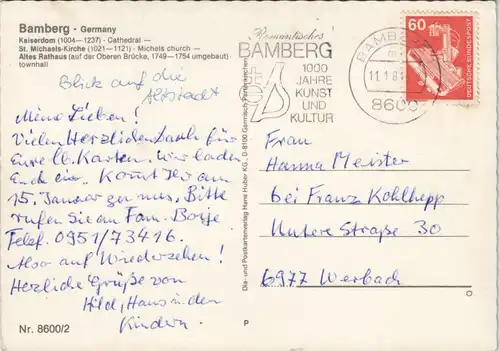 Bamberg - Germany
Kaiserdom (1004—1237) - Cathedral —
St. Michaels-Kirche (1021—1121) - Michels church —
Altes Rathaus (auf der Oberen Brücke, 1749—1754 umgebaut)
townhall
Blick auf die
Altstadt
Meine Lieben!
Vielen Herzlichen Dank für
Eure lb. Karten. Wir laden
Euch ein. Kommt Ihr am
15. Januar zu uns. Bitte
rufen Sie an Fam.
Telef. 0951/73416.
Also auf Wiedersehen!
Herzliche Grüße von
Hild, Hans u. den
Kindern.
Nr. 8600/2
Dia- und Postkartenverlag Hans Huber KG., D-8100 Garmisch-Partenkirchen
P
"Romantisches"
BAMBERG
1000
JAHRE
KUNST
UND
KULTUR
BAMBERG
8600
60
DEUTSCHE BUNDESPOST
Frau
Hanna Meister
bei Franz Kohlhepp
Untere Straße 30
6977 Werbach
O